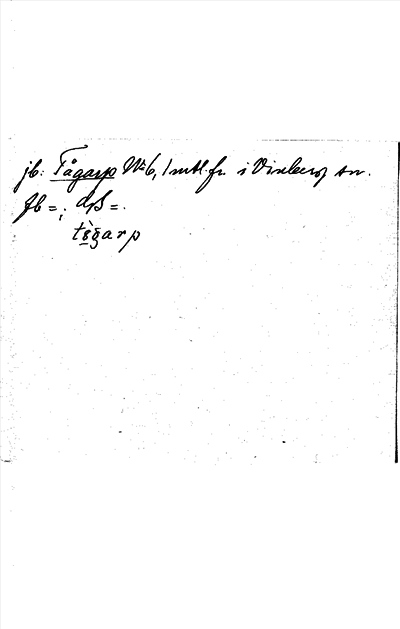 jb. Tågarp No 6, 1 mtl. fr. i Vinberg sn.
fb =; dß =.
tågarp